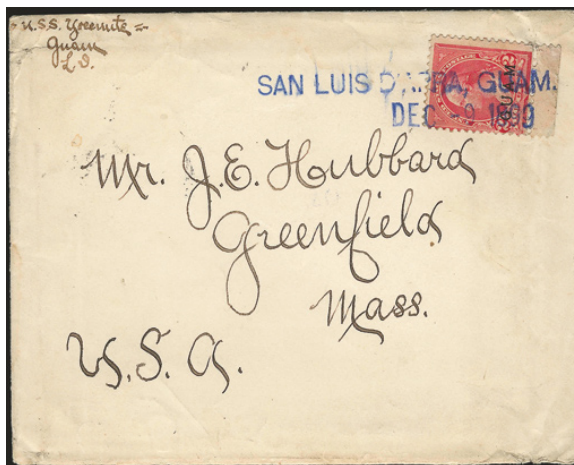 U.S.S. Yosemite
Guam
L.I.
SAN LUIS D'APRA, GUAM.
DEC 1899
GUAM
2
Mr. J.E. Hubbard
Greenfield
Mass.
U.S.A.